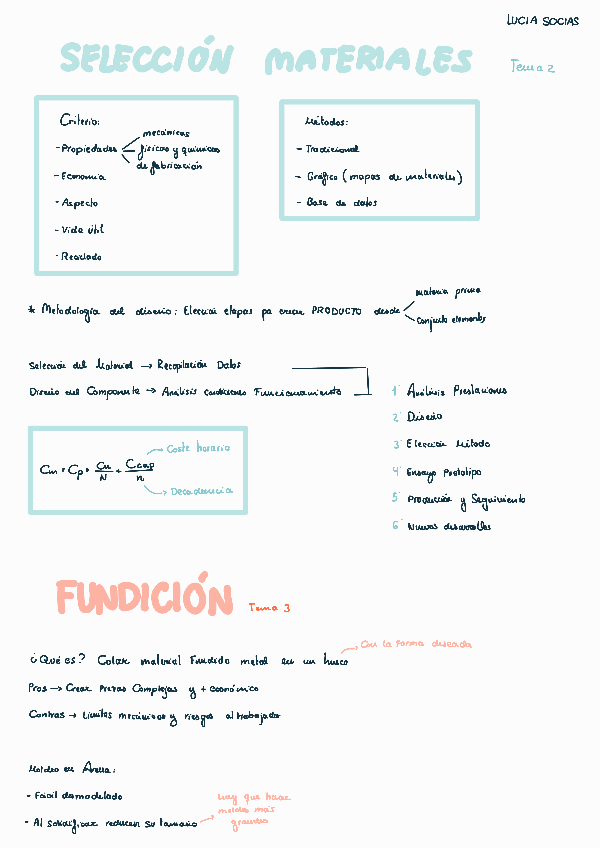 LUCIA SOCIAS
SELECCIÓN MATERIALES Tema 2
Criterio:
- Propiedades
mecánicas
físicas y químicas
de fabricación
- Economía
- Aspecto
- Vida útil
- Reciclado
Métodos:
- Tradicional
- Gráfico (mapas de materiales)
- Base de datos
* Metodología del diseño: Elección etapas pa crear PRODUCTO desde
materia prima
conjunto elementos
Selección del Material → Recopilación Datos
Diseño del Componente → Análisis condiciones Funcionamiento
1° Análisis Prestaciones
2° Diseño
3° Elección Método
4° Ensayo Prototipo
5° Producción y Seguimiento
6° Nuevos desarrollos
→ Coste horario
→ Decadencia
FUNDICIÓN Tema 3
→ Con la forma deseada
¿Qué es? Colar material fundido metal en un hueco
Pros → Crear Piezas Complejas y + económico
Contras → Límites mecánicos y riesgos al trabajador
Moldeo en Arena:
- Fácil desmoldeado
- Al solidificar reducen su tamaño →
hay que hacer
moldes más
grandes